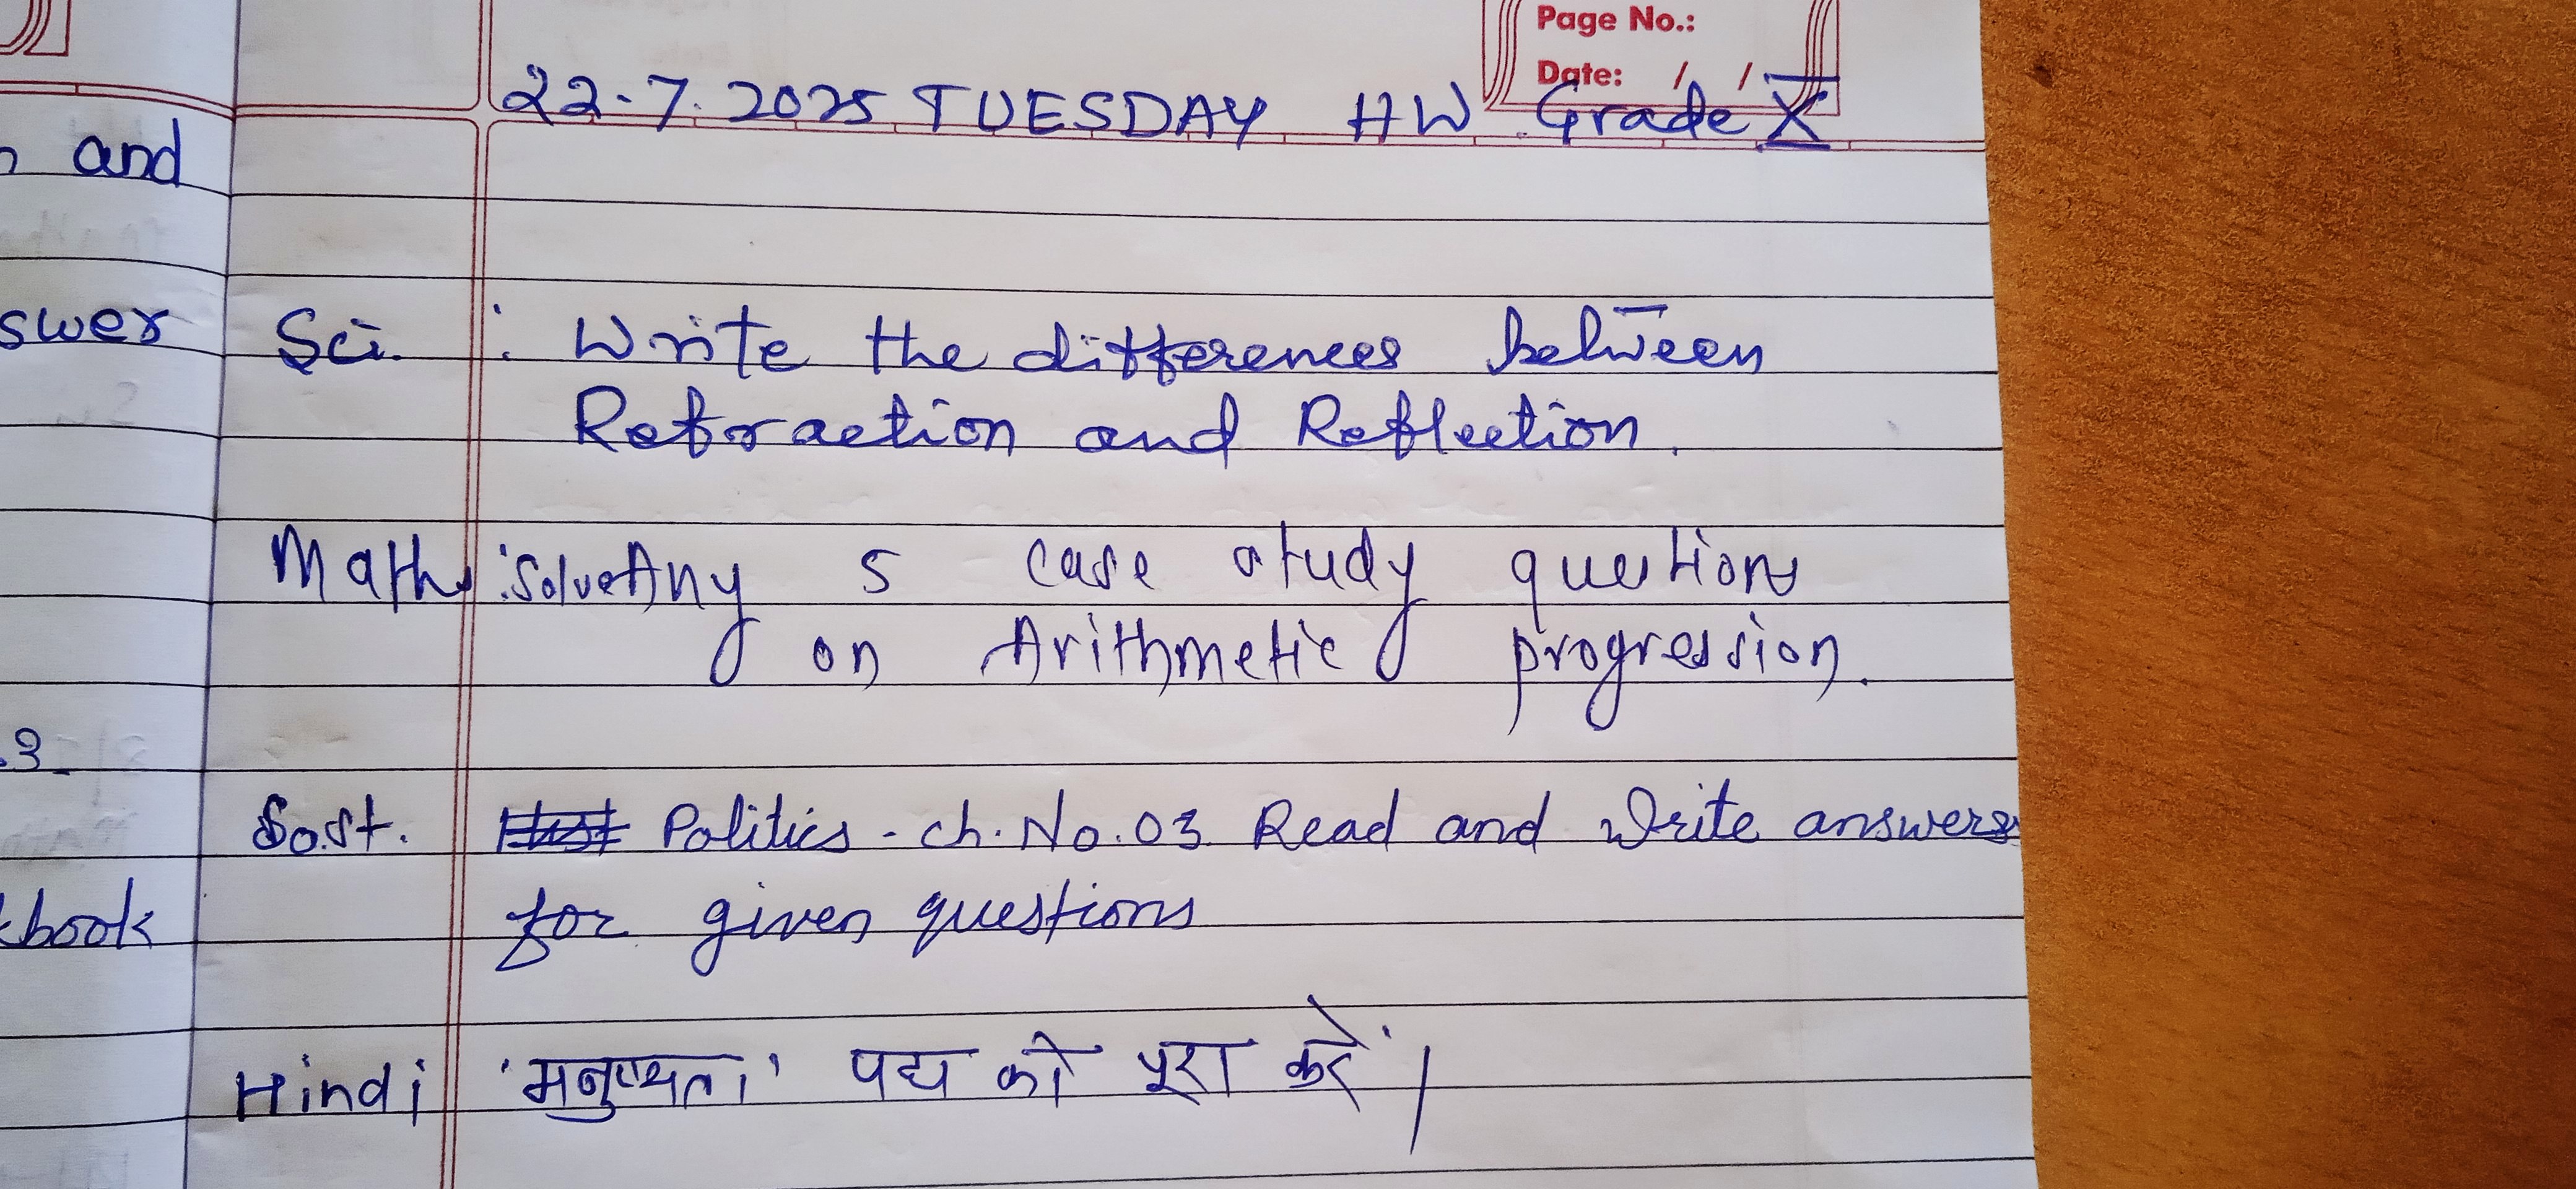 Page No.:
Date: / /
22.7.2025 TUESDAY HW Grade X
and
Sci. : Write the differences between
Refraction and Reflection.
Maths : Solve Any 5 case study questions
on Arithmetic progression.
.3
So.st. Politics - ch. No. 03 Read and Write answers
book
for given questions
Hindi 'मनुष्यता' पद्य को पूरा करें |